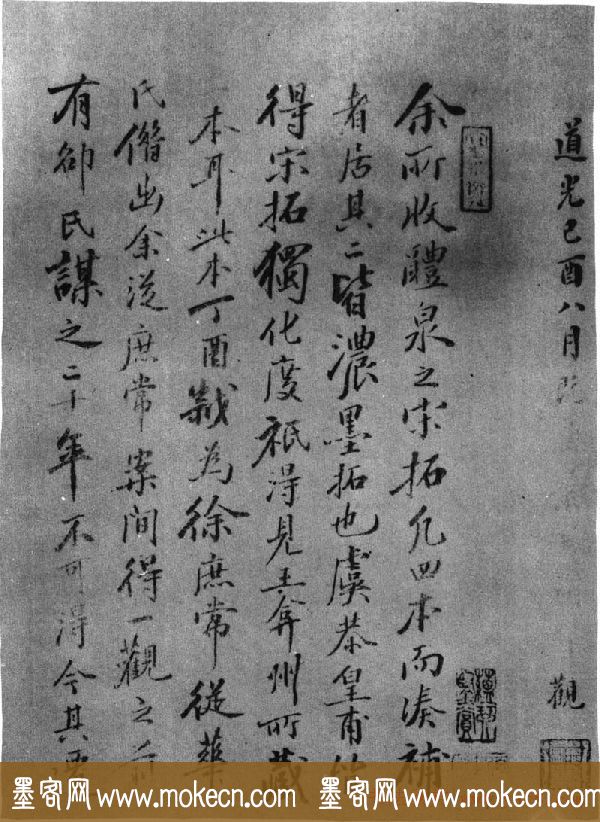 道光己酉八月
觀
余所收醴泉之宋拓凡四本而湊補
者居其二皆濃墨拓也虞恭皇甫
得宋拓獨化度祇得見王弇州所藏
本耳此本丁酉歲為徐庶常從葉
氏借出余從庶常案間得一觀之
有卻氏謀之二十年不可得今其
墨客网 www.mokecn.com 墨客网 www.mokecn.com